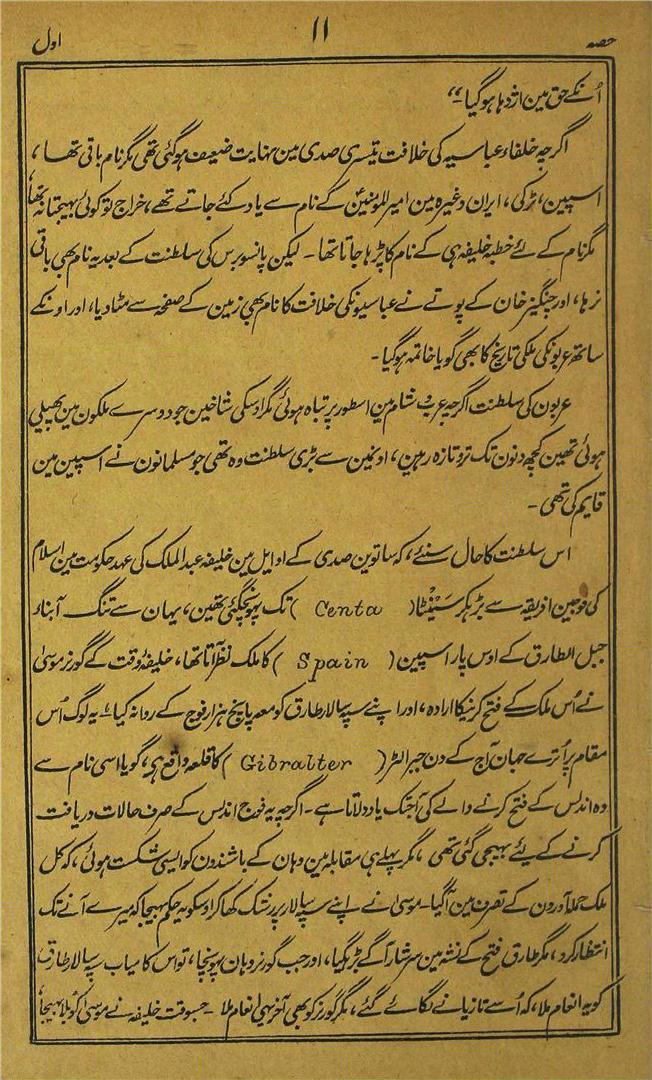 حصہ ۱۱ اول
اُنکے حق مین اژدہا ہوگیا۔“
اگرچہ خلفاء عباسیہ کی خلافت تیسری صدی مین نہایت ضعیف ہوگئی تھی مگر نام باقی تھا،
اسپین، ٹرکی، ایران وغیرہ مین امیر المومنین کے نام سے یاد کئے جاتے تھے، خراج تو کوئی بھیجتا نہ تھا،
مگر نام کے لئے خطبہ خلیفہ ہی کے نام کا پڑہا جاتا تھا۔ لیکن پانسو برس کی سلطنت کے بعد یہ نام بھی باقی
نرہا، اور چنگیز خان کے پوتے نے عباسیونکی خلافت کا نام بھی زمین کے صفحہ سے مٹادیا، اور اونکے
ساتھ عربونکی ملکی تاریخ کا بھی گویا خاتمہ ہوگیا۔
عربون کی سلطنت اگرچہ عرب و شام مین اسطور پر تباہ ہوئی مگر اوسکی شاخین جو دوسرے ملکون مین پھیلی
ہوئی تھین کچھ دنون تک تروتازہ رہین، اونمین سے بڑی سلطنت وہ تھی جو مسلمانون نے اسپین مین
قایم کی تھی۔
اس سلطنت کا حال سنئے، کہ ساتوین صدی کے اوایل مین خلیفہ عبد الملک کی عہد حکومت مین اسلام
کی فوجین افریقہ سے بڑہکر سَیَنْٹا (Centa) تک پہونچگئی تھین، یہان سے تنگ آبناء
جبل الطارق کے اوس پار اسپین (Spain) کا ملک نظر آتا تھا، خلیفۂ وقت کے گورنر موسیٰ
نے اُس ملک کے فتح کرنیکا ارادہ، اور اپنے سپہ سالار طارق کو معہ پانچ ہزار فوج کے روانہ کیا۔ یہ لوگ اُس
مقام پر اُترے جہان آج کے دن جبرالٹر (Gibralter) کا قلعہ واقع ہی، گویا اسی نام سے
وہ اندلس کے فتح کرنے والے کی آجتک یاد دلاتا ہے۔ اگرچہ یہ فوج اندلس کے صرف حالات دریافت
کرنے کے لیئے بھیجی گئی تھی، مگر پہلے ہی مقابلہ مین وہان کے باشندون کو ایسی شکست ہوئی، کہ کل
ملک حملہ آورون کے تصرف مین آگیا۔ موسیٰ نے اپنے سپہ سالار پر رشک کھاکر اوسکو یہ حکم بھیجا کہ میرے آنے تک
انتظار کرو، مگر طارق فتح کے نشہ مین سرشار آگے بڑہگیا، اور جب گورنر وہان پہونچا، تو اس کامیاب سپہ سالار طارق
کو یہ انعام ملا، کہ اُسے تازیانے لگائے گئے، مگر گورنر کو بھی آخر یہی انعام ملا۔ جسوقت خلیفہ نے موسیٰ کو بلا بھیجا